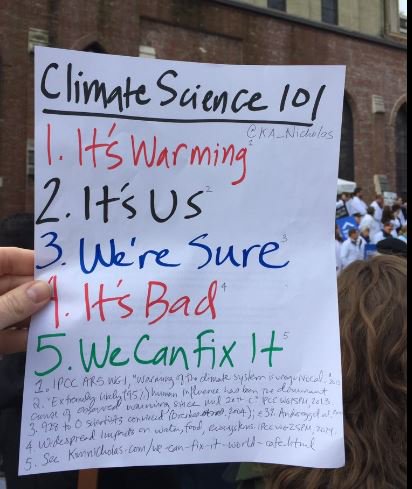 Climate Science 101
@KA_Nicholas
1. It's Warming¹
2. It's Us²
3. We're Sure³
4. It's Bad⁴
5. We Can fix It⁵
1. IPCC AR5 WG1, "Warming of the climate system is unequivocal."
2. "Extremely likely (95%) human influence has been the dominant
cause of observed warming since mid 20th C" IPCC WG1SPM, 2013.
3. 928 to 0 scientists convinced
4. Widespread impacts on water, food, ecosystems. IPCC WG2SPM, 2014.
5. See Kimnicholas.com/we-can-fix-it-world-cafe.html